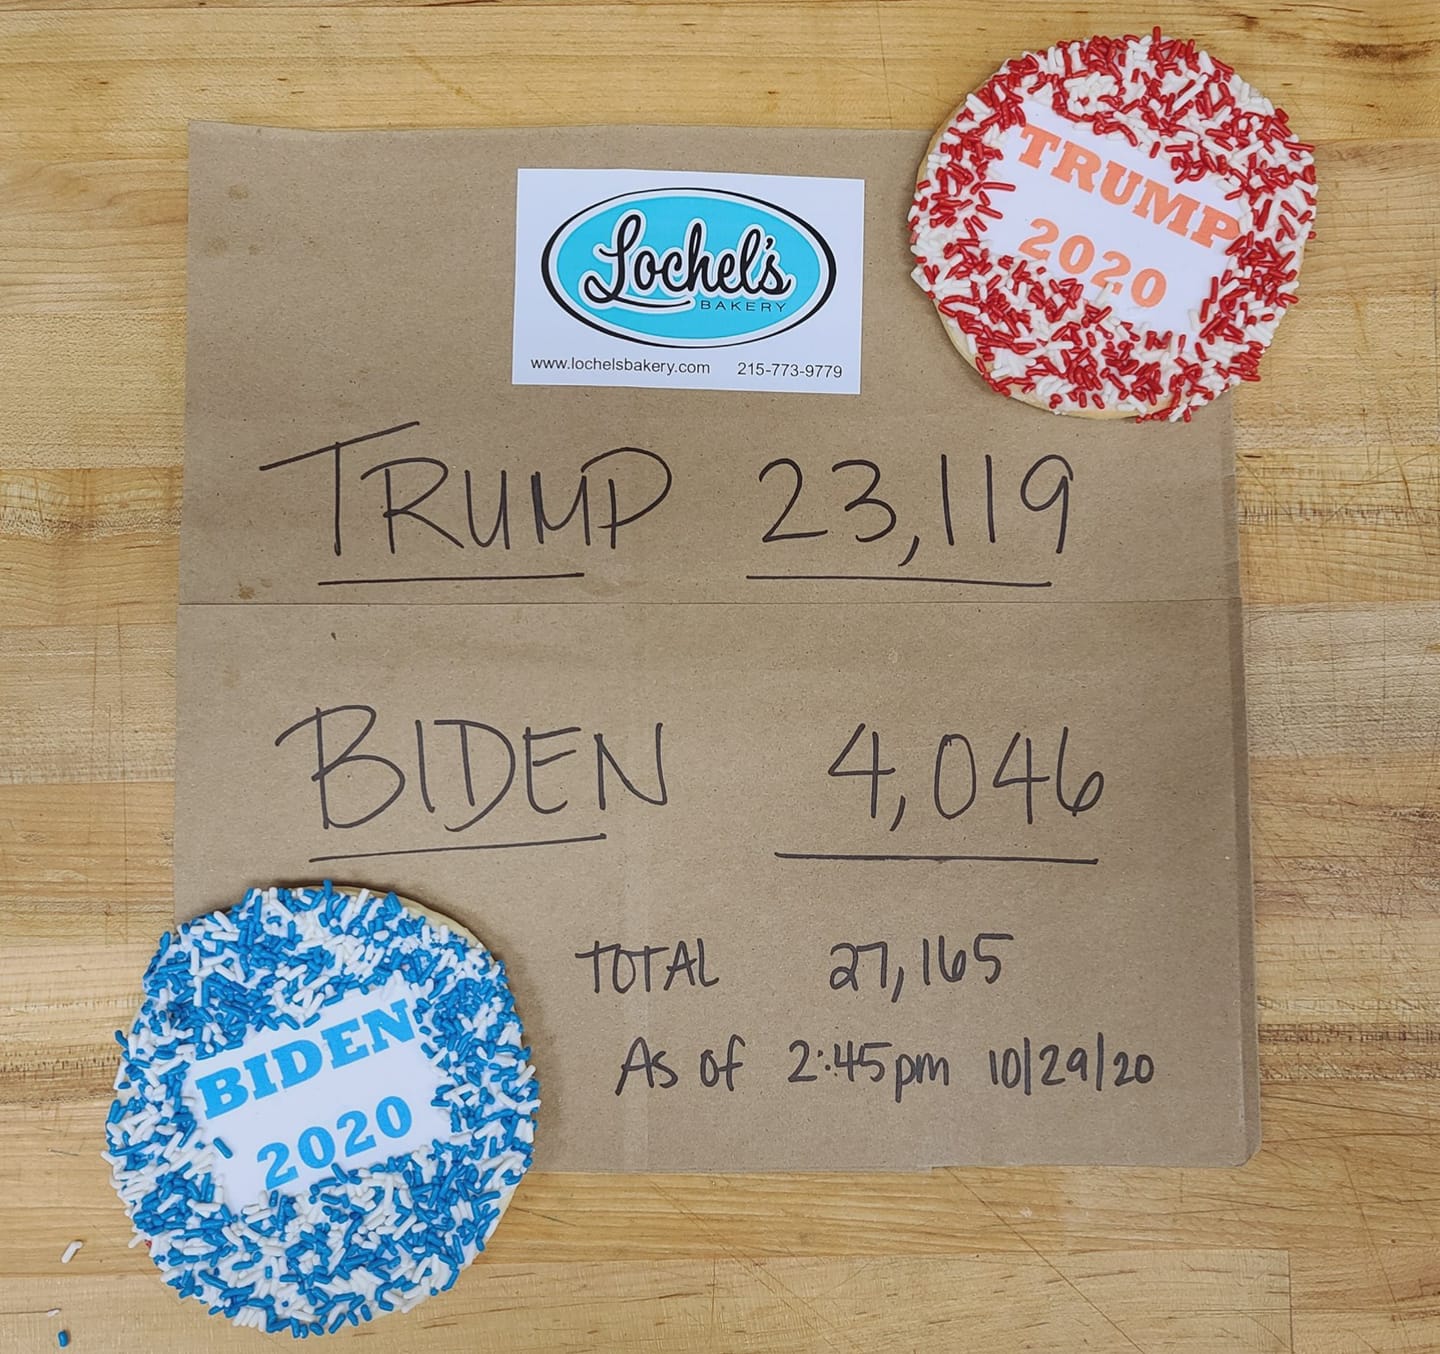 TRUMP
2020
Lochel's
BAKERY
www.lochelsbakery.com 215-773-9779
TRUMP 23,119
BIDEN 4,046
TOTAL 27,165
As of 2:45pm 10/29/20
BIDEN
2020